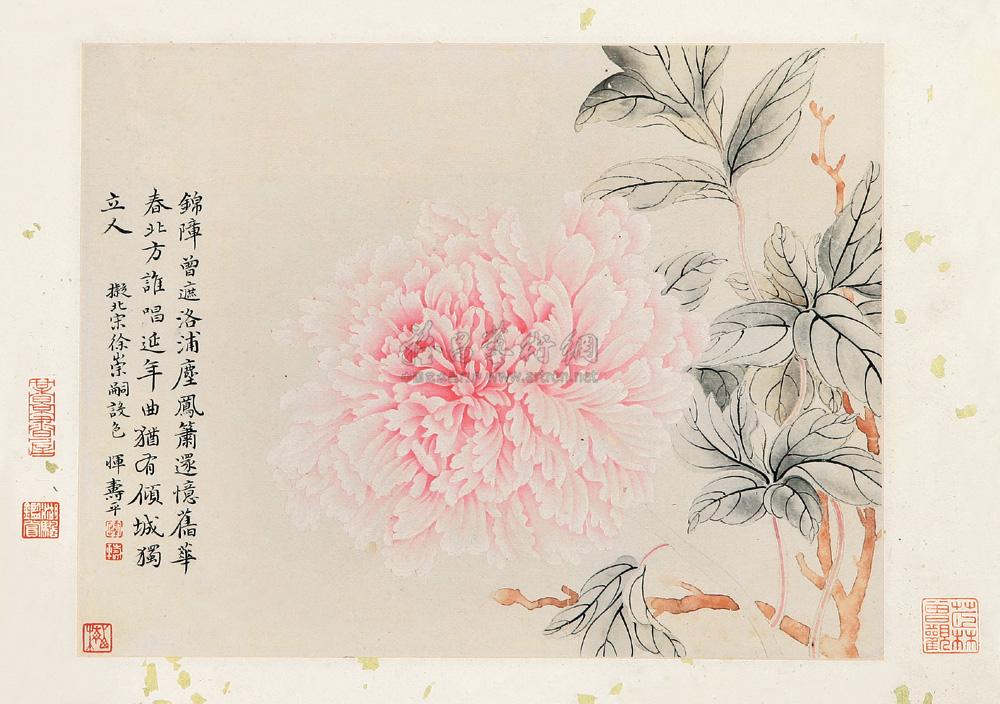 錦障曾遮洛浦塵鳳簫還憶舊華
春北方誰唱延年曲猶有傾城獨
立人
擬北宋徐崇嗣設色 惲壽平
茝林
曾觀